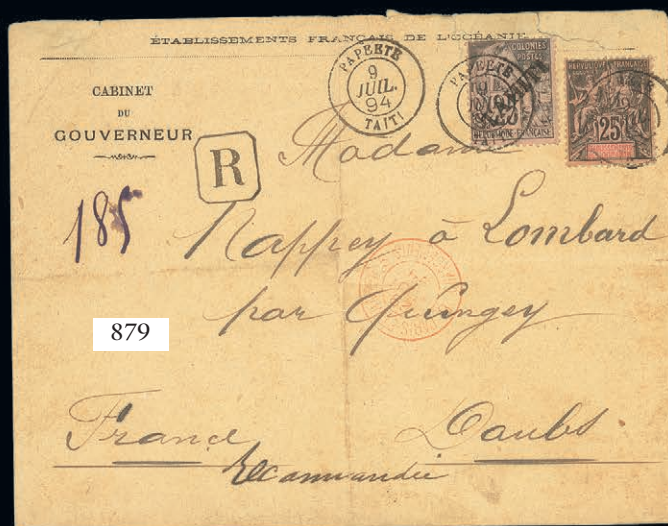 ÉTABLISSEMENTS FRANÇAIS DE L'OCÉANIE
CABINET
DU
GOUVERNEUR
PAPEETE
9
JUIL.
94
TAITI
PAPEETE
9
TAITI
COLONIES
POSTES
TAHITI
RÉPUBLIQUE FRANÇAISE
RÉPUBLIQUE FRANÇAISE
25
R
185
Madame
Nappey à Lombard
par Quingey
879
France
Doubs
Recommandée